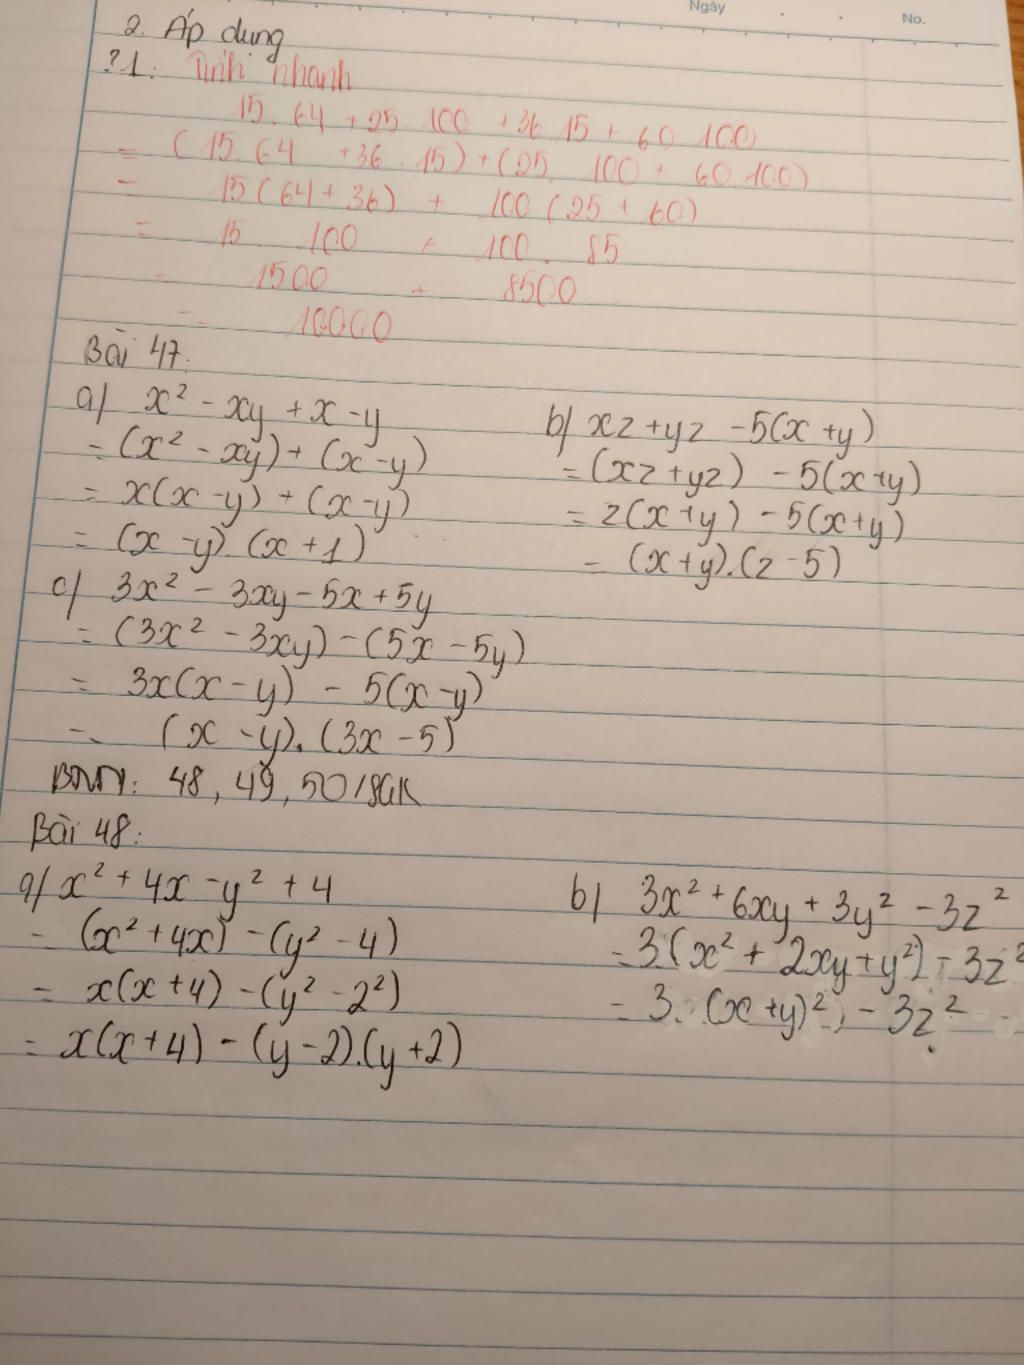 Ngày
No.
2. Áp dụng
?1: Tính nhanh
15.64 + 25 100 + 36 15 + 60 100
= (15.64 + 36.15) + (25. 100 + 60.100)
= 15(64 + 36) + 100(25 + 60)
= 15. 100 + 100. 85
= 1500 + 8500
= 10000
Bài 47:
a) x² - xy + x - y
= (x² - xy) + (x - y)
= x(x - y) + (x - y)
= (x - y).(x + 1)
b) xz + yz - 5(x + y)
= (xz + yz) - 5(x + y)
= z(x + y) - 5(x + y)
= (x + y).(z - 5)
c) 3x² - 3xy - 5x + 5y
= (3x² - 3xy) - (5x - 5y)
= 3x(x - y) - 5(x - y)
= (x - y).(3x - 5)
BTVN: 48, 49, 50/SGK
Bài 48:
a) x² + 4x - y² + 4
= (x² + 4x) - (y² - 4)
= x(x + 4) - (y² - 2²)
= x(x + 4) - (y - 2).(y + 2)
b) 3x² + 6xy + 3y² - 3z²
= 3.(x² + 2xy + y²) - 3z²
= 3. (x + y)² - 3z²